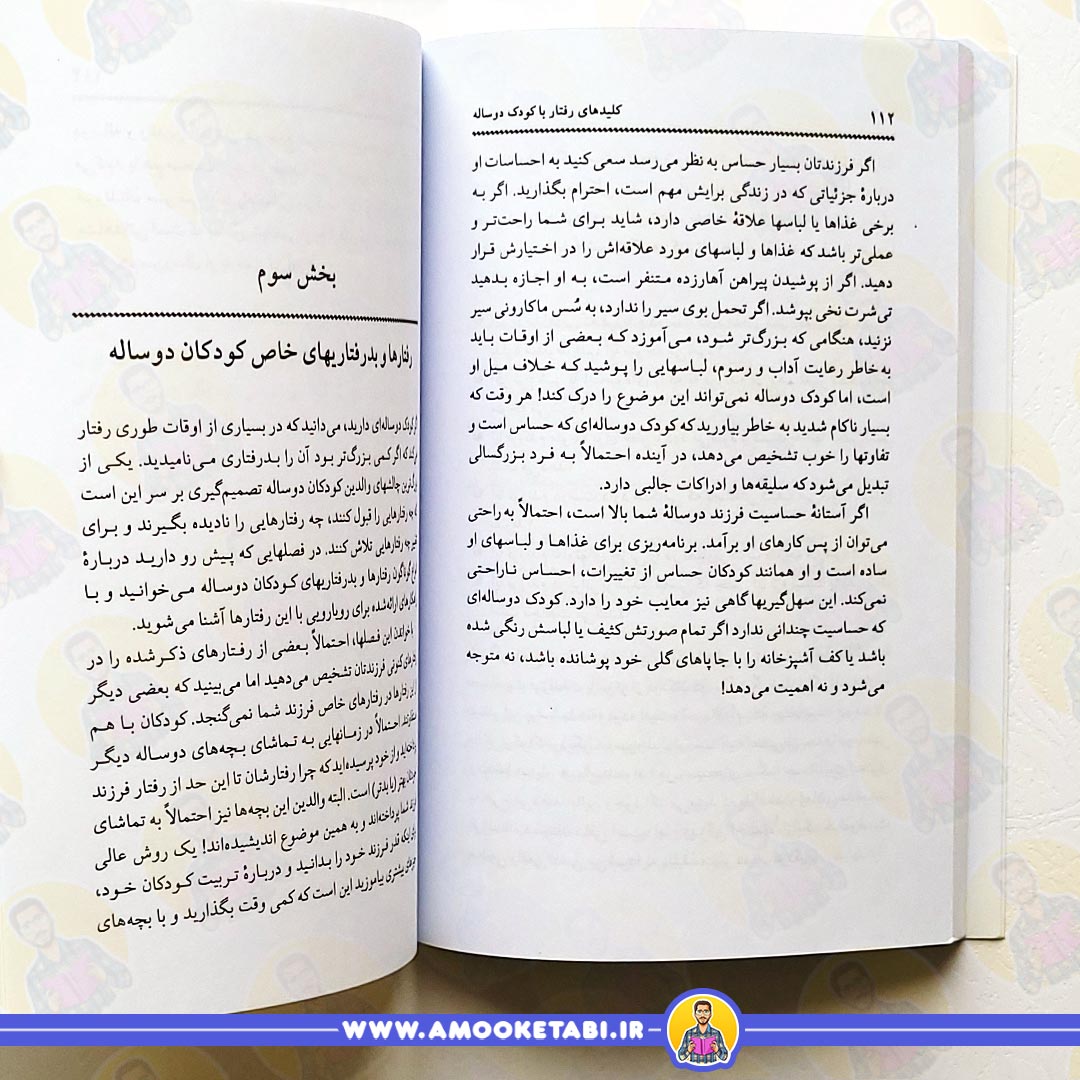 ۱۱۲ کلیدهای رفتار با کودک دوساله
اگر فرزندتان بسیار حساس به نظر می‌رسد سعی کنید به احساسات او
دربارهٔ جزئیاتی که در زندگی برایش مهم است، احترام بگذارید. اگر به
برخی غذاها یا لباسها علاقهٔ خاصی دارد، شاید برای شما راحت‌تر و
عملی‌تر باشد که غذاها و لباسهای مورد علاقه‌اش را در اختیارش قرار
دهید. اگر از پوشیدن پیراهن آهارزده متنفر است، به او اجازه بدهید
تی‌شرت نخی بپوشد. اگر تحمل بوی سیر را ندارد، به سُس ماکارونی سیر
نزنید، هنگامی که بزرگ‌تر شود، می‌آموزد که بعضی از اوقات باید
به خاطر رعایت آداب و رسوم، لباسهایی را پوشید که خلاف میل او
است، اما کودک دوساله نمی‌تواند این موضوع را درک کند! هر وقت که
بسیار ناکام شدید به خاطر بیاورید که کودک دوساله‌ای که حساس است و
تفاوتها را خوب تشخیص می‌دهد، در آینده احتمالاً به فرد بزرگسالی
تبدیل می‌شود که سلیقه‌ها و ادراکات جالبی دارد.
اگر آستانهٔ حساسیت فرزند دوسالهٔ شما بالا است، احتمالاً به راحتی
می‌توان از پس کارهای او برآمد. برنامه‌ریزی برای غذاها و لباسهای او
ساده است و او همانند کودکان حساس از تغییرات، احساس ناراحتی
نمی‌کند. این سهل‌گیریها گاهی نیز معایب خود را دارد. کودک دوساله‌ای
که حساسیت چندانی ندارد اگر تمام صورتش کثیف یا لباسش رنگی شده
باشد یا کف آشپزخانه را با جاپاهای گلی خود پوشانده باشد، نه متوجه
می‌شود و نه اهمیت می‌دهد!
بخش سوم
رفتارها و بدرفتاریهای خاص کودکان دوساله
کودک دوساله‌ای دارید، می‌دانید که در بسیاری از اوقات طوری رفتار
که اگر کمی بزرگ‌تر بود آن را بدرفتاری می‌نامیدید. یکی از
چالشهای والدین کودکان دوساله تصمیم‌گیری بر سر این است
چه رفتارهایی را قبول کنند، چه رفتارهایی را نادیده بگیرند و برای
چه رفتارهایی تلاش کنند. در فصلهایی که پیش رو دارید دربارهٔ
گوناگون رفتارها و بدرفتاریهای کودکان دوساله می‌خوانید و با
ارائه‌شده برای رویارویی با این رفتارها آشنا می‌شوید.
با خواندن این فصلها، احتمالاً بعضی از رفتارهای ذکرشده را در
کنونی فرزندتان تشخیص می‌دهید اما می‌بینید که بعضی دیگر
از این رفتارها در رفتارهای خاص فرزند شما نمی‌گنجد. کودکان با هم
احتمالاً در زمانهایی به تماشای بچه‌های دوساله دیگر
و از خود پرسیده‌اید که چرا رفتارشان تا این حد از رفتار فرزند
بهتر (یا بدتر) است. البته والدین این بچه‌ها نیز احتمالاً به تماشای
شما پرداخته‌اند و به همین موضوع اندیشیده‌اند! یک روش عالی
اینکه قدر فرزند خود را بدانید و دربارهٔ تربیت کودکان خود،
بیشتری بیاموزید این است که کمی وقت بگذارید و با بچه‌های
WWW.AMOOKETABI.IR